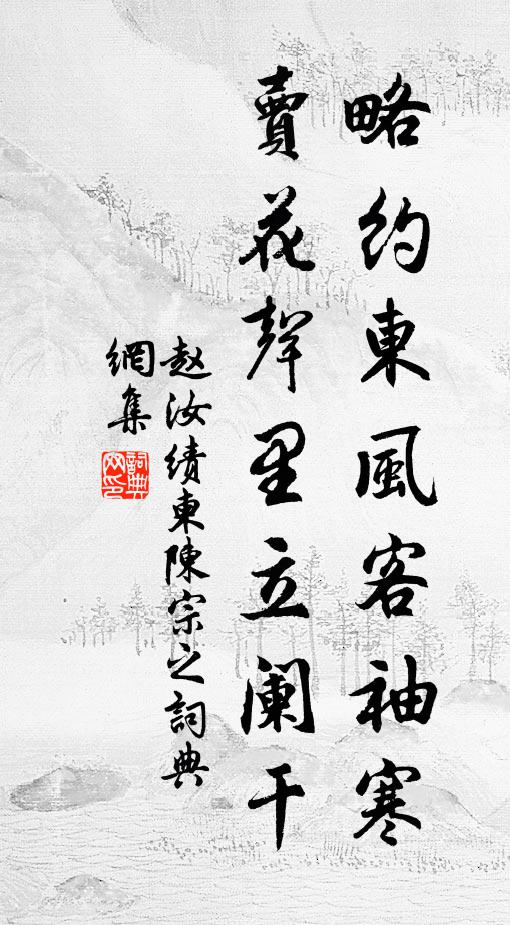 略約東風客袖寒
賣花聲里立阑干
赵汝绩東陳宗之詞典
網集
詞典
网印